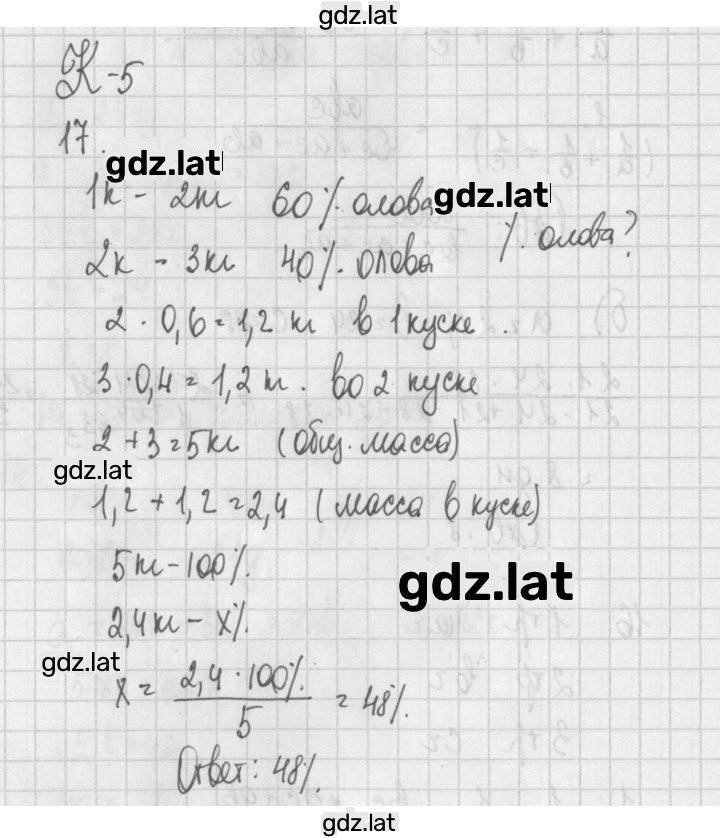 gdz.lat
К-5
17.
gdz.lat
1к - 2кг 60% олова
gdz.lat
% олова?
2к - 3кг 40% олова
2 · 0,6 = 1,2 кг в 1 куске.
3 · 0,4 = 1,2 кг. во 2 куске
2 + 3 = 5кг (общ. масса)
gdz.lat
1,2 + 1,2 = 2,4 (масса в куске)
5кг - 100%.
gdz.lat
2,4кг - x%.
gdz.lat
x = 2,4 · 100% / 5 = 48%.
Ответ: 48%.
gdz.lat